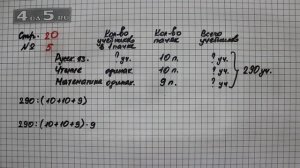 4 GA 5 RU
Стр. 20
№ 5
Кол-во учебников в 1 пачке
Кол-во пачек
Всего учебников
Русск. яз. ? уч. 10 п. ? уч.
Чтение одинак. 10 п. ? уч. 290 уч.
Математика одинак. 9 п. ? уч.
290:(10+10+9)
290:(10+10+9)·9